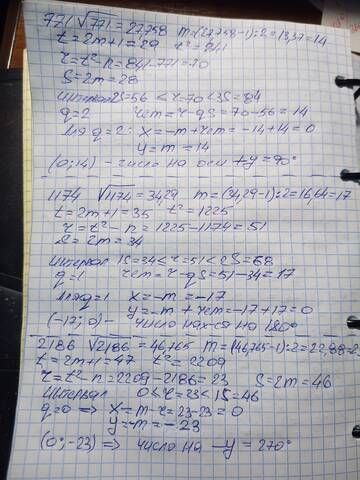 771 √771 = 27,758 m=(27,758-1):2=13,37=14
t=2m+1=29 t²=841
r=t²-n=841-771=70
S=2m=28
Интервал 2S=56 < r=70 < 3S=84
q=2 rem=r-qS=70-56=14
Для q=2: x=-m+rem=-14+14=0
y=m=14
(0;14) - число на оси +y=90°
1174 √1174=34,29 m=(34,29-1):2=16,64=17
t=2m+1=35 t²=1225
r=t²-n=1225-1174=51
S=2m=34
Интервал 1S=34<r=51<2S=68
q=1 rem=r-qS=51-34=17
Для q=1 x=-m=-17
y=-m+rem=-17+17=0
(-17;0)- число нах-ся на 180°
2186 √2186=46,765 m=(46,765-1):2=22,88=2
t=2m+1=47 t²=2209
r=t²-n=2209-2186=23 S=2m=46
Интервал 0≤r=23<1S=46
q=0 => x=m-r=23-23=0
y=-m=-23
(0;-23) => число на -y=270°